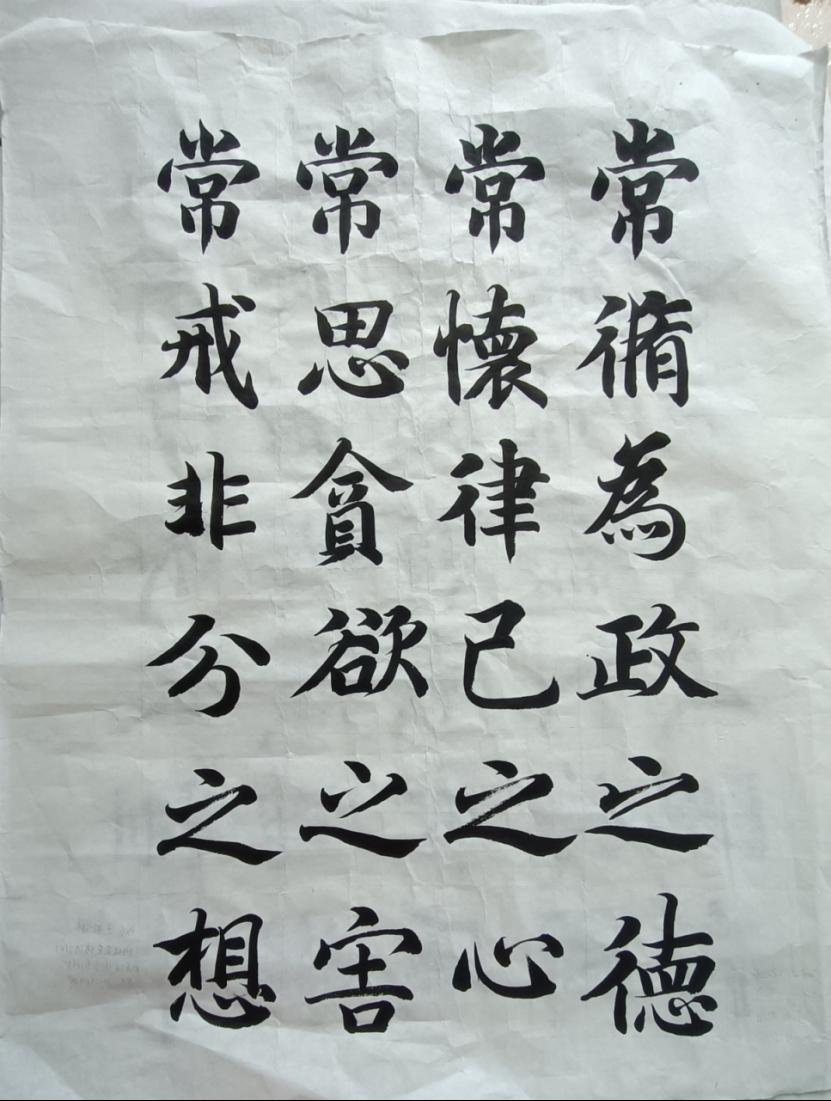 常循為政之德
常懷律己之心
常思貪欲之害
常戒非分之想